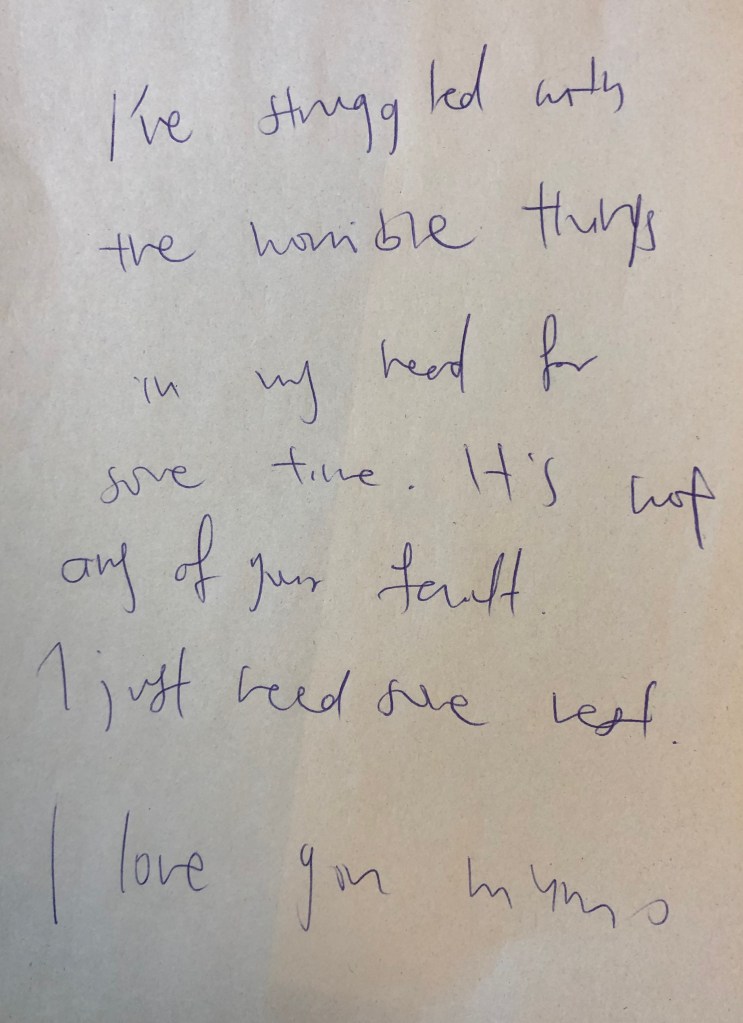 I've struggled with
the horrible things
in my head for
some time. It's not
any of your fault.
I just need some rest.
I love you